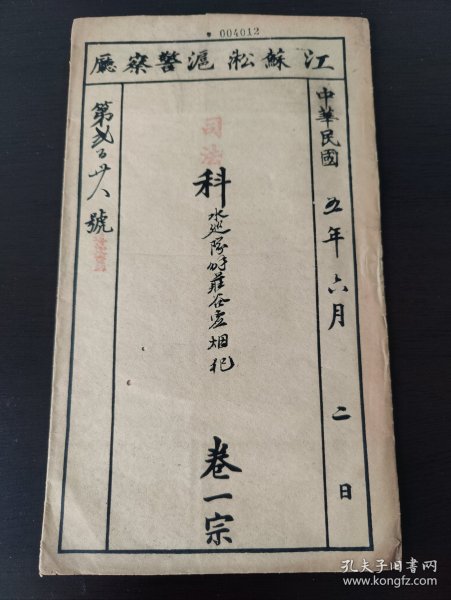 004012
江蘇淞滬警察廳
中華民國 五年六月 二日
司法科 水巡隊解莊烟犯 卷一宗
第弍百八號
孔夫子旧书网
www.kongfz.com